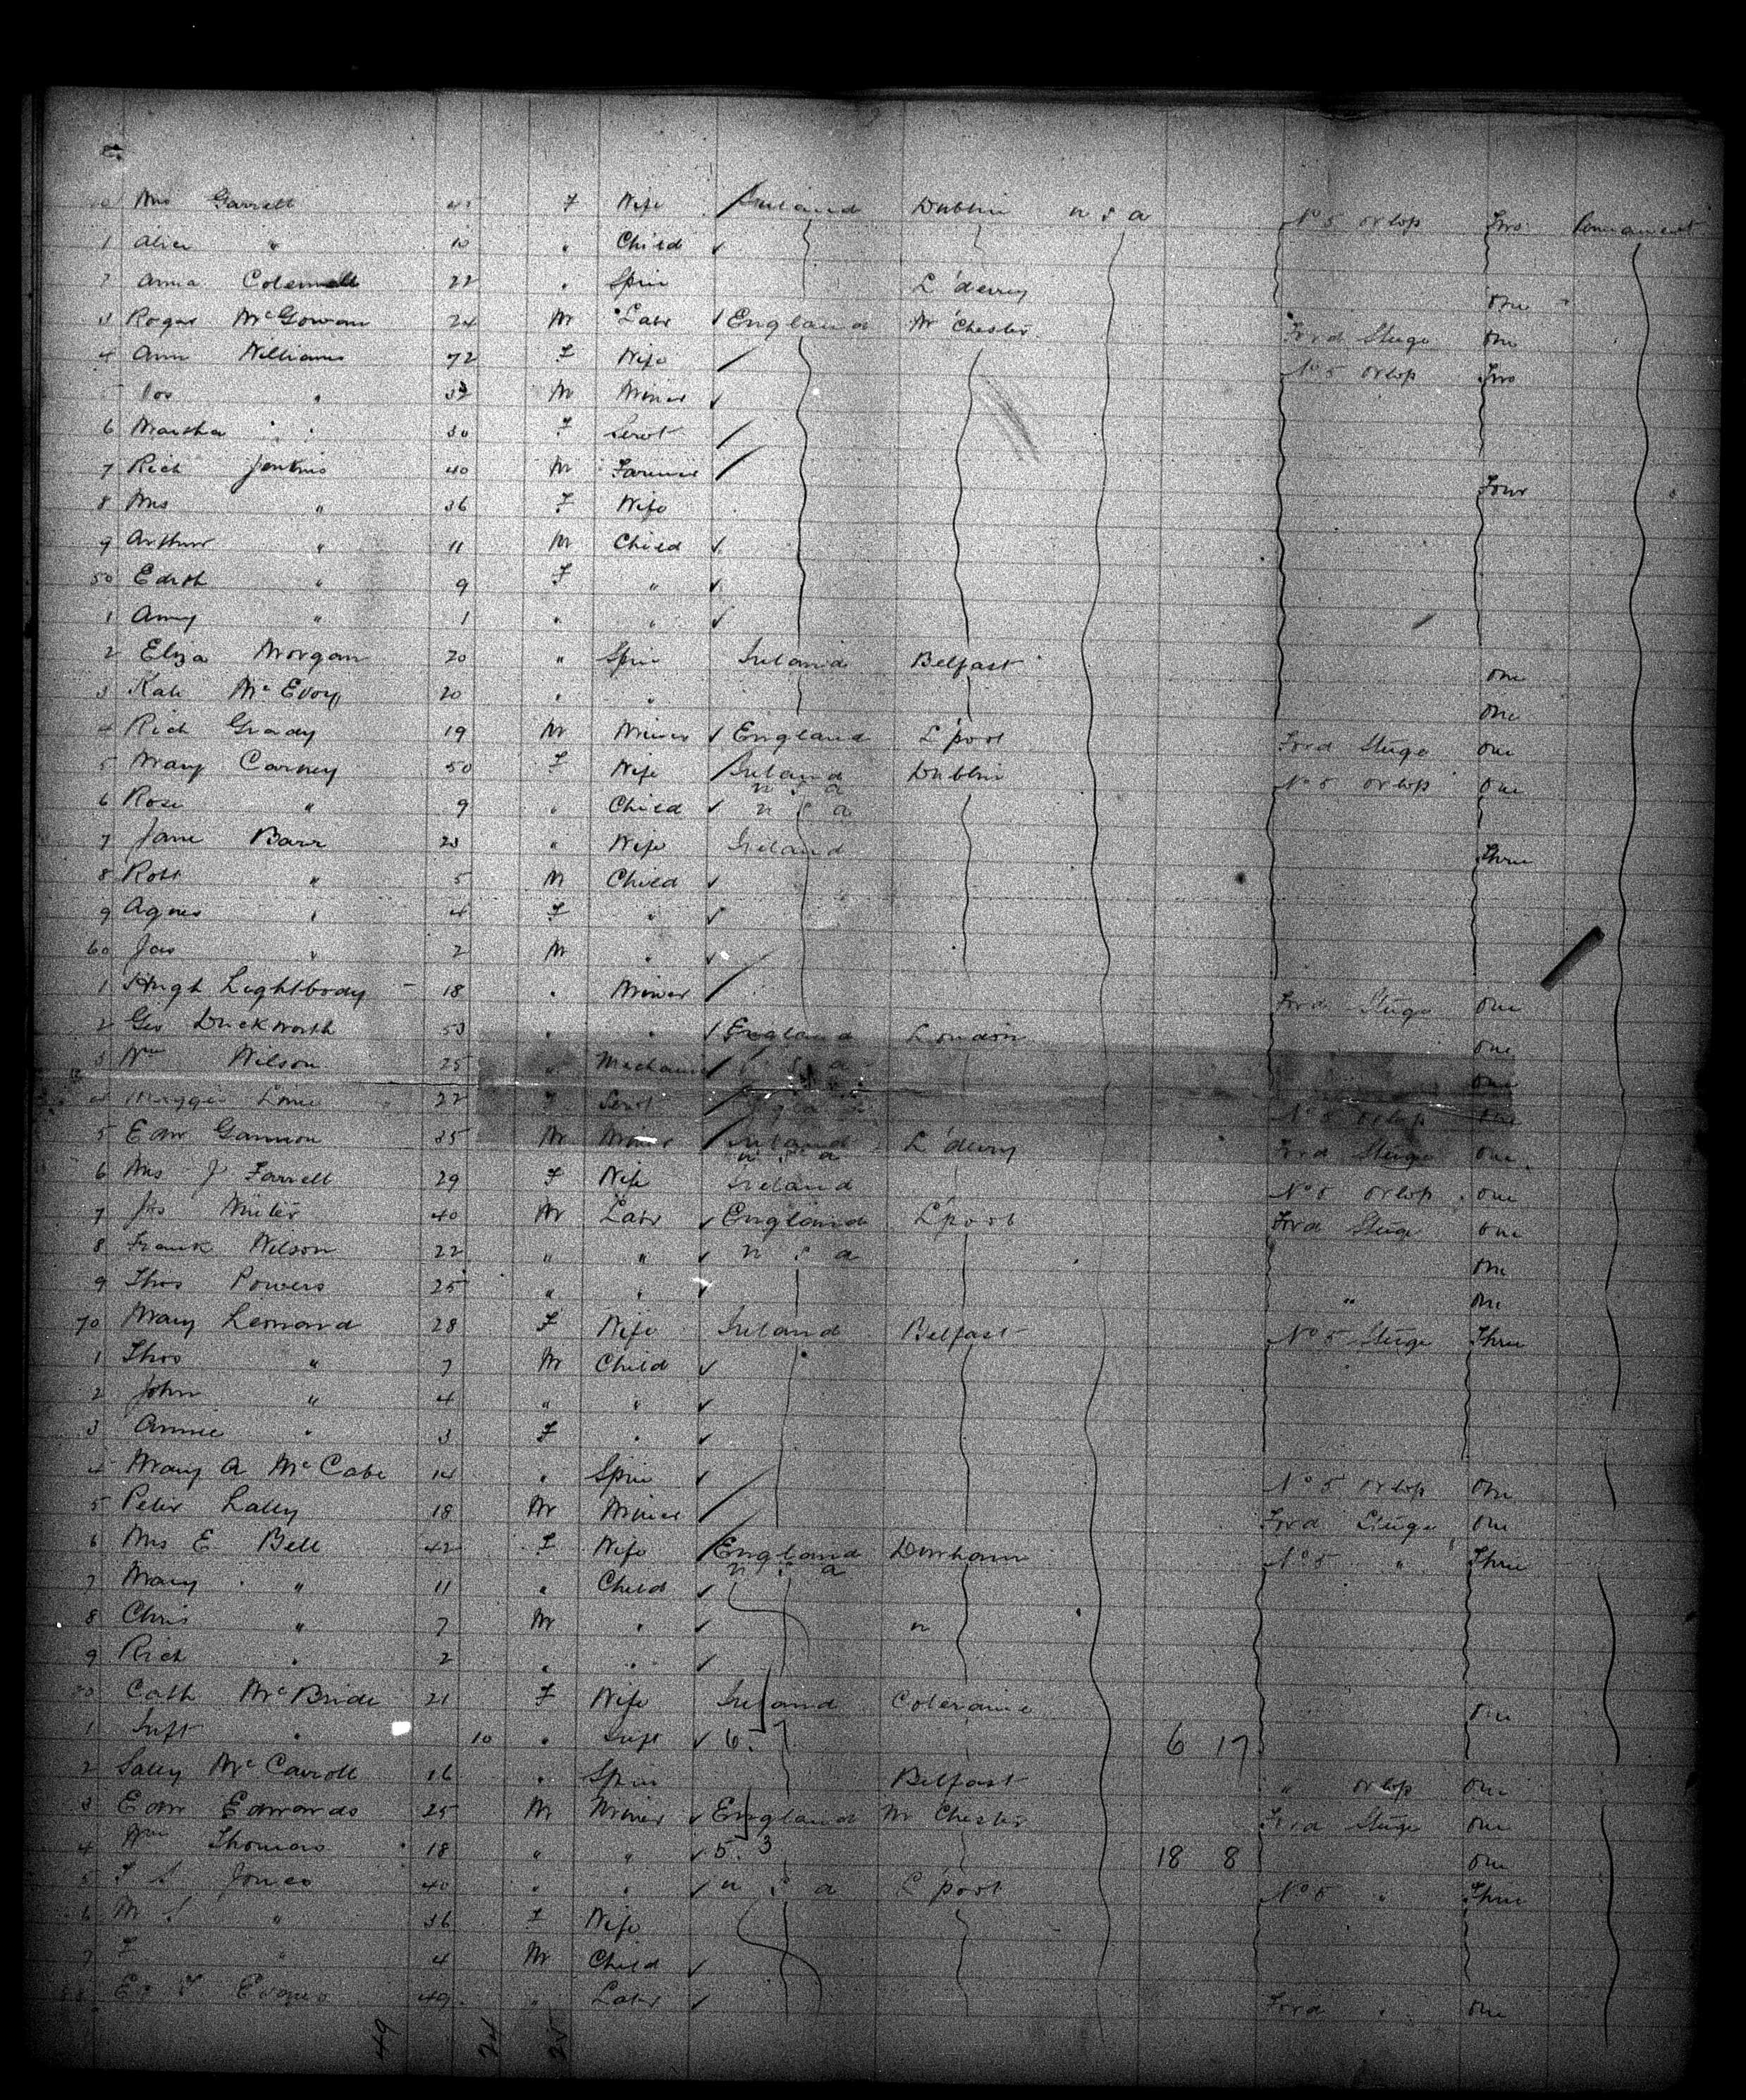 Mrs Garrett 45 F Wife Ireland Dublin U S A No 5 orlop Two Permanent
1 Alice " 10 " Child ✓
2 Anna 22 " Spin L'derry One
3 Roger McGowan 24 M Labr ✓ England M'Chester Ford Stuge One
4 Ann Williams 72 F Wife No 5 orlop Two
5 " M Miner ✓
6 Martha " 30 F Servt
7 Rich Jenkins 40 M Farmer Four
8 Mrs " 36 F Wife
9 Arthur " 11 M Child ✓
50 Edith " 9 F " ✓
1 Amy " 1 " " ✓
2 Eliza Morgan 20 " Spin Ireland Belfast One
3 Kate McEvoy 20 " " One
4 Rich Grady 19 M Miner ✓ England L'pool Ford Stuge One
5 Mary Carney 50 F Wife Ireland Dublin No 5 orlop One
U S A
6 Rose " 9 " Child ✓ U S A
7 Jane Barr 23 " Wife Ireland Three
8 Robt " 5 M Child ✓
9 Agnes " 4 F " ✓
60 Jas " 2 M " ✓
1 Hugh Lightbody 18 " Miner Ford Stuge One
2 Geo Duckworth 53 " " ✓ England London One
3 Wm Wilson 25 " Mechanic U S A One
4 Maggie 22 F Servt No 5 orlop One
5 Edw Gannon 35 M Miner Ireland L'derry Ford Stuge One
U S A
6 Mrs J Farrell 29 F Wife Ireland No 5 orlop One
7 Jas 40 M Labr ✓ England L'pool Ford Stuge One
8 Frank Wilson 22 " " ✓ U S A One
9 Thos Powers 25 " " ✓ " One
70 Mary Leonard 28 F Wife Ireland Belfast No 5 Stuge Three
1 Thos " 7 M Child ✓
2 John " 4 " " ✓
3 Annie " 3 F " ✓
4 Mary A McCabe 14 " Spin ✓ No 5 orlop One
5 Peter Lally 18 M Miner Ford Stuge One
6 Mrs E Bell 42 F Wife England Durham No 5 " Three
U S A
7 Mary " 11 " Child ✓
8 Chris " 7 M " ✓ "
9 Rich " 2 " " ✓
80 Cath McBride 21 F Wife Ireland Coleraine One
1 Inft " 10 " Inft ✓ 6.7 6 17
2 Sally McCarroll 16 " Spin Belfast " orlop One
3 Edw Edwards 25 M Miner ✓ England M'Chester Ford Stuge One
4 Wm Thomas 18 " " ✓ 5.3 18 8 One
5 T S Jones 40 " " ✓ U S A L'pool No 5 " Three
6 M S " 36 F Wife
7 F " 4 M Child ✓
88 Evans 49 " Labr ✓ Ford " One
49 24 25